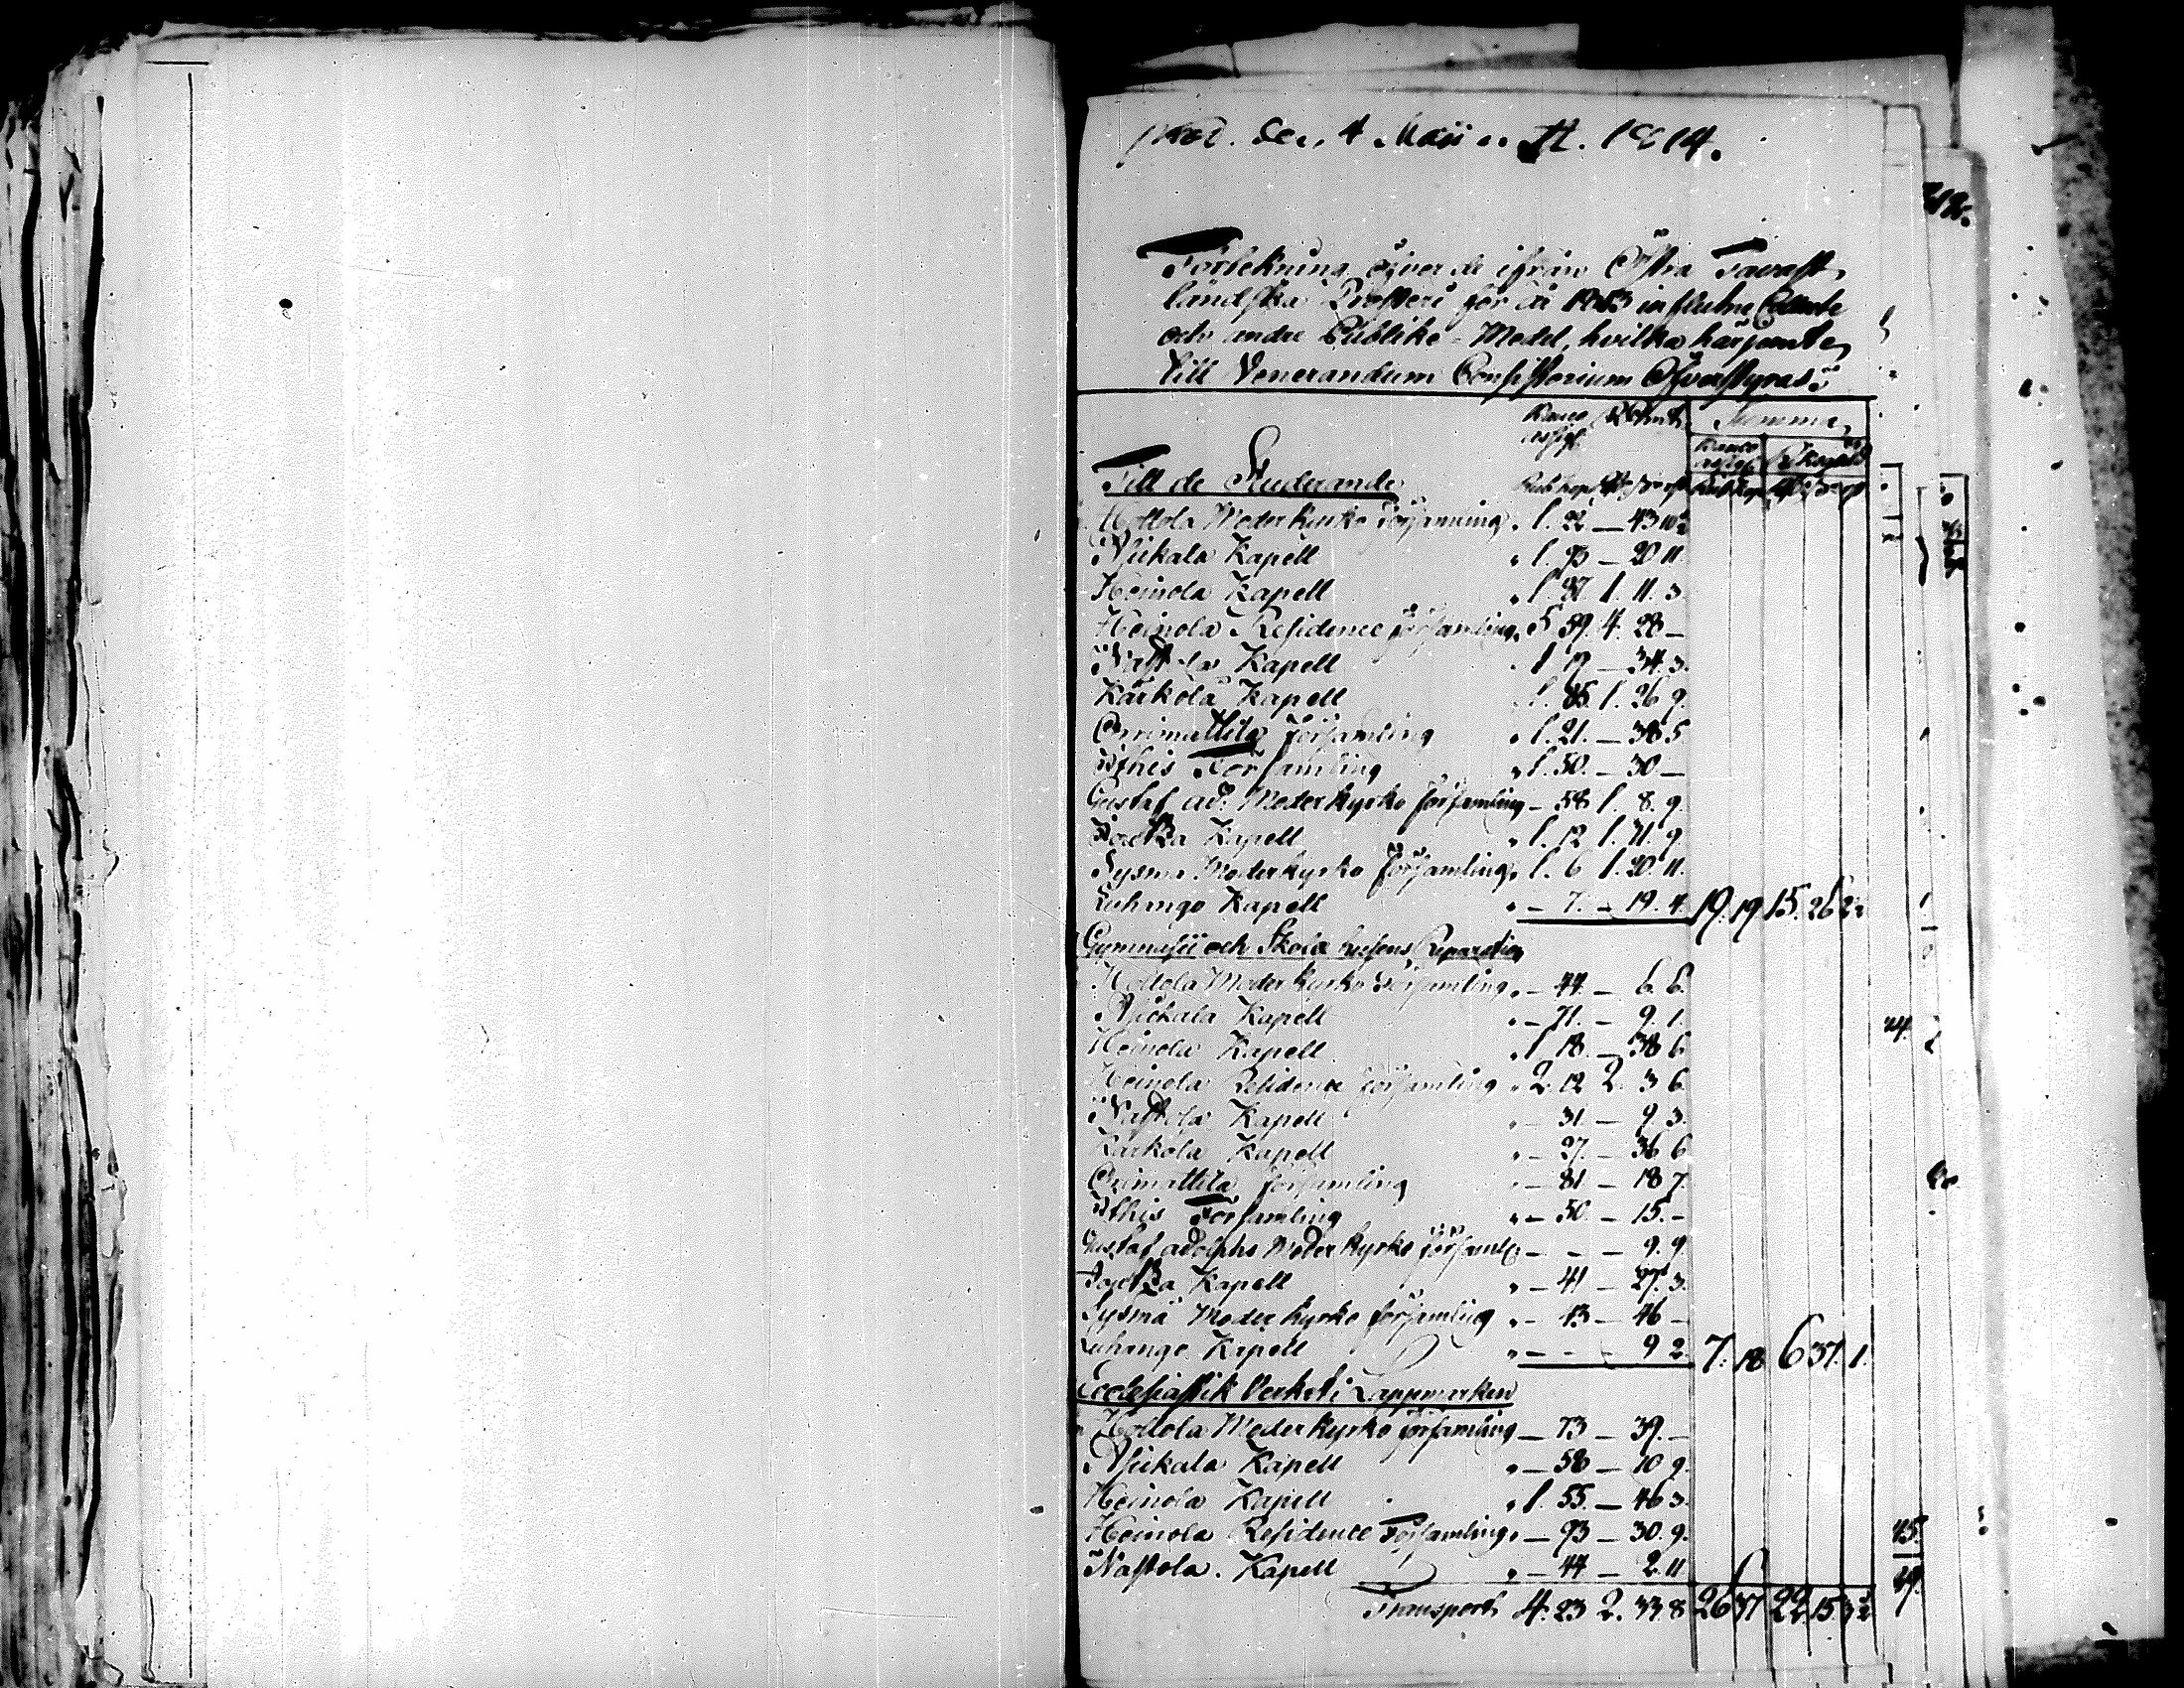 den 4 Maii 1814.
Förtekning öfver de ifrån Östra Tavast-
ländska Prosteri för år 1813 influtne Collecte
och andre Publike-Medel, hvilka härjemte
till Venerandum Consistorium Öfverstyras:
Banco Assign. Summa
Banco Assign.
Till de Studerande Rub. kop.
Hollola Moderkyrko Församling 1. 22 — 43 10½
Asikala Kapell 1. 93 — 20 11.
Heinola Kapell 1. 87 1. 11. 3
Heinola Residence församling 5 59. 4. 28 —
Nastola Kapell 1 19 — 34. 3.
Kärkölä Kapell 1. 85. 1. 26 9.
Orimattila Församling 1. 21. — 38 5
Ithis Församling 1. 50. — 30 —
Gustaf ad: Moderkyrko församling — 58 1. 8. 9.
Kapell 1. 12 1. 9
Sysmä Moderkyrko församling 1. 6 1. 20. 11.
Luhango Kapell — 7. — 19. 4. 19. 19 15. 26
Gymnasii och Skola hussens Reparation
Hollola Moderkyrko Församling — 44. — 6. 6.
Asikala Kapell — 71. — 9. 1.
Heinola Kapell 1 18. — 38 6
Heinola Residence församling 2. 12 2. 3 6.
Nastola Kapell — 31. — 9. 3.
Kärkola Kapell — 27. — 36 6
Orimattila församling — 81 — 18 7.
Ithis Församling — 50. — 15. —
Gustaf adolphs Moderkyrko församl: — — — 9. 9.
Kapell — 41 — 27. 3.
Sysmä Moderkyrko församling — 13 — 46 —
Luhango Kapell — — — 9 2. 7. 18 6 37. 1.
Ecclesiastik Verket i Lappmarken
Hollola Moderkyrko församling — 73 — 39. —
Asikala Kapell — 58 — 10 9.
Heinola Kapell 1. 55. — 46 3.
Heinola Residence Församling — 93 — 30. 9.
Nastola Kapell — 44 — 2. 11
Transport 4. 23 2. 33 8 26 37 22 15